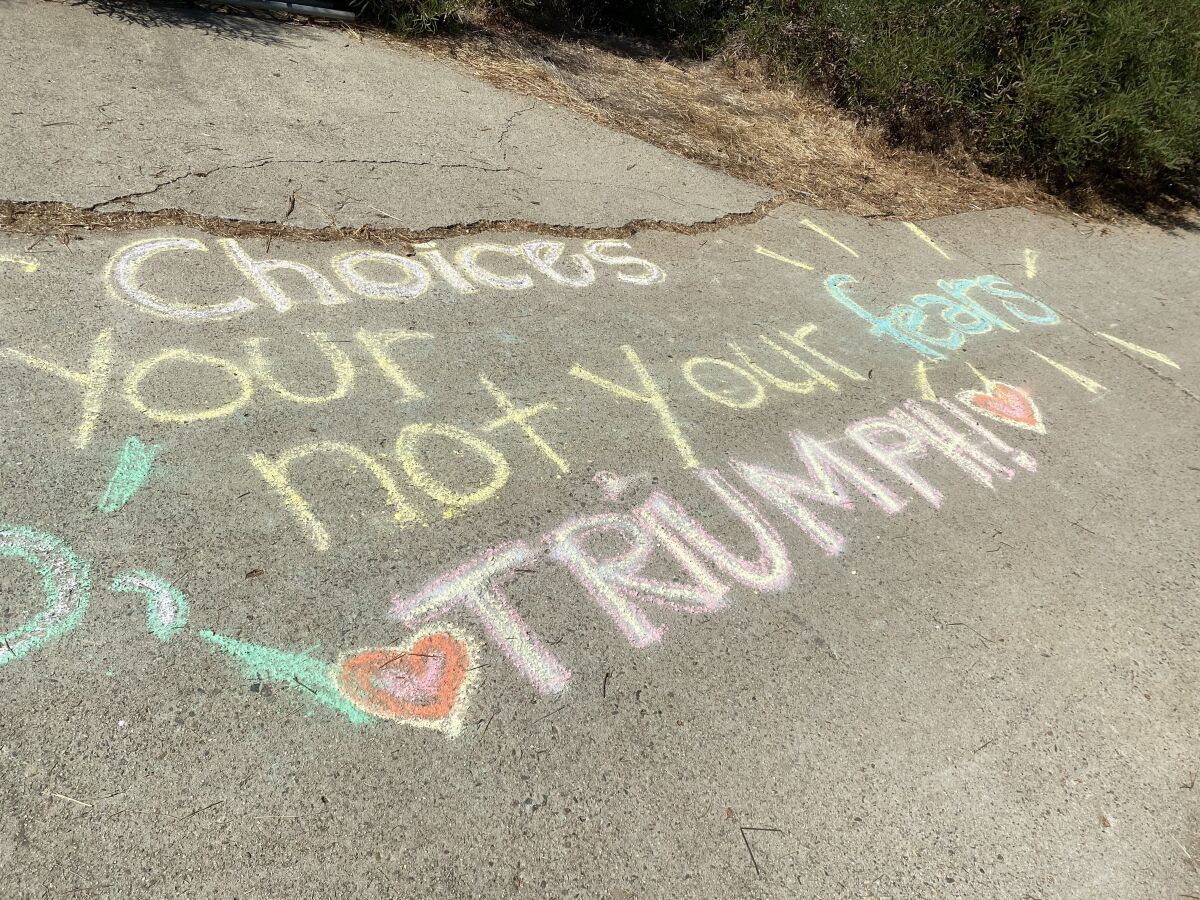 Choices
Your
not Your fears
TRIUMPH!!